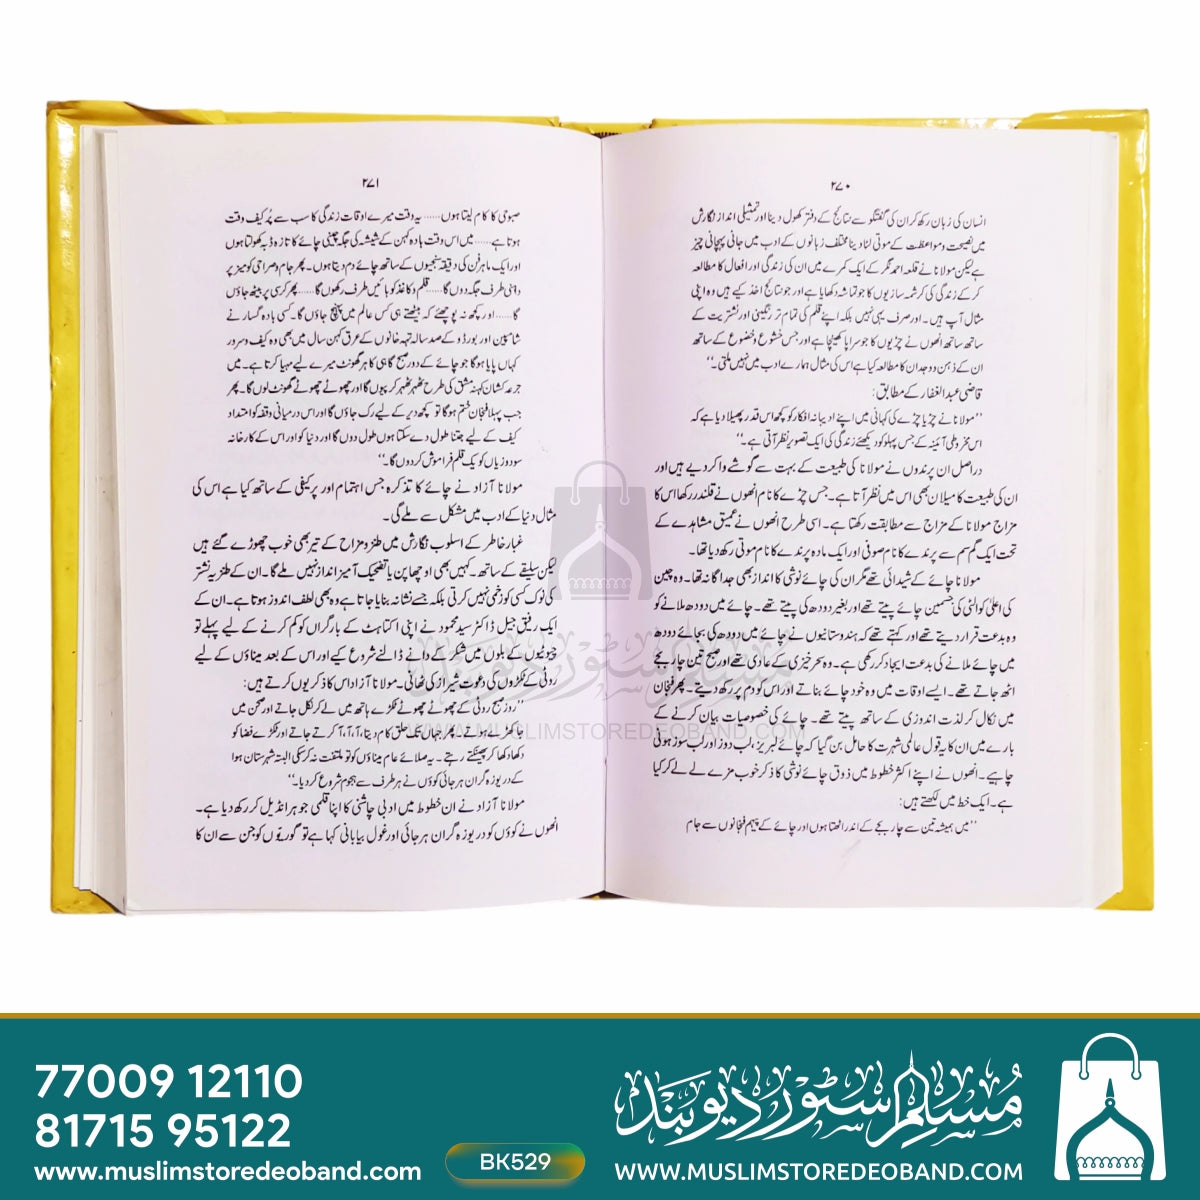 ۲۷۰
انسان کی زبان رکھ کر ان کی گفتگو سے نتائج کے دفتر کھول دینا اور تمثیلی انداز نگارش
میں نصیحت و مواعظت کے موتی لٹا دینا مختلف زبانوں کے ادب میں جانی پہچانی چیز
ہے لیکن مولانا نے قلعہ احمد نگر کے ایک کمرے میں ان کی زندگی اور افعال کا مطالعہ
کر کے زندگی کی کرشمہ سازیوں کا جو تماشہ دکھایا ہے اور جو نتائج اخذ کیے ہیں وہ اپنی
مثال آپ ہیں۔ اور صرف یہی نہیں بلکہ اپنے قلم کی تمام تر رنگینی اور نشتریت کے
ساتھ ساتھ انھوں نے چڑیوں کا جو سراپا کھینچا ہے اور جس خشوع و خضوع کے ساتھ
ان کے ذہن و وجدان کا مطالعہ کیا ہے اس کی مثال ہمارے ادب میں نہیں ملتی۔‘‘
قاضی عبدالغفار کے مطابق:
’’مولانا نے چڑیا چڑے کی کہانی میں اپنے ادیبانہ افکار کو کچھ اس قدر پھیلا دیا ہے کہ
اس مخروطی آئینہ کے جس پہلو کو دیکھئے زندگی کی ایک تصویر نظر آتی ہے۔‘‘
دراصل ان پرندوں نے مولانا کی طبیعت کے بہت سے گوشے وا کر دیے ہیں اور
ان کی طبیعت کا میلان بھی اس میں نظر آتا ہے۔ جس چڑے کا نام انھوں نے قلندر رکھا اس کا
مزاج مولانا کے مزاج سے مطابقت رکھتا ہے۔ اسی طرح انھوں نے عمیق مشاہدے کے
تحت ایک گم سم سے پرندے کا نام صوفی اور ایک مادہ پرندے کا نام موتی رکھ دیا تھا۔
مولانا چائے کے شیدائی تھے مگر ان کی چائے نوشی کا انداز بھی جدا گانہ تھا۔ وہ چین
کی اعلیٰ کوالٹی کی جسمین چائے پیتے تھے اور بغیر دودھ کی پیتے تھے۔ چائے میں دودھ ملانے کو
وہ بدعت قرار دیتے تھے اور کہتے تھے کہ ہندوستانیوں نے چائے میں دودھ کی بجائے دودھ
میں چائے ملانے کی بدعت ایجاد کر رکھی ہے۔ وہ سحر خیزی کے عادی تھے اور صبح تین چار بجے
اٹھ جاتے تھے۔ ایسے اوقات میں وہ خود چائے بناتے اور اس کو دم پر رکھ دیتے۔ پھر فنجان
میں نکال کر لذت اندوزی کے ساتھ پیتے تھے۔ چائے کی خصوصیات بیان کرنے کے
بارے میں ان کا یہ قول عالمی شہرت کا حامل بن گیا کہ چائے لبریز، لب دوز اور لب سوز ہونی
چاہیے۔ انھوں نے اپنے اکثر خطوط میں ذوق چائے نوشی کا ذکر خوب مزے لے لے کر کیا
ہے۔ ایک خط میں لکھتے ہیں:
’’میں ہمیشہ تین سے چار بجے کے اندر اٹھتا ہوں اور چائے کے پیہم فنجانوں سے جام
۲۷۱
صبوحی کا کام لیتا ہوں...... یہ وقت میرے اوقات زندگی کا سب سے پُر کیف وقت
ہوتا ہے...... میں اس وقت بادہ کہن کے شیشہ کی جگہ چینی چائے کا تازہ ڈبہ کھولتا ہوں
اور ایک ماہر فن کی دقیقہ سنجیوں کے ساتھ چائے دم دیتا ہوں۔ پھر جام و صراحی کو میز پر
داہنی طرف جگہ دوں گا...... قلم و کاغذ کو بائیں طرف رکھوں گا...... پھر کرسی پر بیٹھ جاؤں
گا...... اور کچھ نہ پوچھئے کہ بیٹھتے ہی کس عالم میں پہنچ جاؤں گا۔ کسی بادہ گسار نے
شامپین اور بورڈو کے صد سالہ تہہ خانوں کے عرق کہن سال میں بھی وہ کیف و سرور
کہاں پایا ہوگا جو چائے کے دور صبح گاہی کا ہر گھونٹ میرے لیے مہیا کرتا ہے۔ میں
جرعہ کشان کہنہ مشق کی طرح ٹھہر ٹھہر کر پیوں گا اور چھوٹے چھوٹے گھونٹ لوں گا۔ پھر
جب پہلا فنجان ختم ہوگا تو کچھ دیر کے لیے رک جاؤں گا اور اس درمیانی وقفہ کو امتداد
کیف کے لیے جتنا طول دے سکتا ہوں طول دوں گا اور دنیا کو اور اس کے کارخانہ
سود و زیاں کو یک قلم فراموش کر دوں گا۔‘‘
مولانا آزاد نے چائے کا تذکرہ جس اہتمام اور پر کیفی کے ساتھ کیا ہے اس کی
مثال دنیا کے ادب میں مشکل سے ملے گی۔
غبار خاطر کے اسلوب نگارش میں طنز و مزاح کے تیر بھی خوب چھوڑے گئے ہیں
لیکن سلیقے کے ساتھ۔ کہیں بھی اوچھا پن یا تضحیک آمیز انداز نہیں ملے گا۔ ان کے طنزیہ نشتر
کی نوک کسی کو زخمی نہیں کرتی بلکہ جسے نشانہ بنایا جاتا ہے وہ بھی لطف اندوز ہوتا ہے۔ ان کے
ایک رفیق جیل ڈاکٹر سید محمود نے اپنی اکتاہٹ کے بار گراں کو کم کرنے کے لیے پہلے تو
چیونٹیوں کے بلوں میں شکر کے دانے ڈالنے شروع کیے اور اس کے بعد میناؤں کے لیے
روٹی کے ٹکڑوں کی دعوت شیراز کی ٹھانی۔ مولانا آزاد اس کا ذکر یوں کرتے ہیں:
’’روز صبح روٹی کے چھوٹے چھوٹے ٹکڑے ہاتھ میں لے کر نکل جاتے اور صحن میں
جا کھڑے ہوتے۔ پھر جہاں تک حلق کام دیتا، آ، آ، آ، آ کرتے جاتے اور ٹکڑے فضا کو
دکھا دکھا کر پھینکتے رہتے۔ یہ صلائے عام میناؤں کو تو ملتفت نہ کر سکی البتہ شہرستان ہوا
کے دریوزہ گران ہر جائی کوؤں نے ہر طرف سے ہجوم شروع کر دیا۔‘‘
مولانا آزاد نے ان خطوط میں ادبی چاشنی کا اپنا قلمی جوہر انڈیل کر رکھ دیا ہے۔
انھوں نے کوؤں کو دریوزہ گران ہر جائی اور غول بیابانی کہا ہے تو گوریوں کو جن سے ان کا
مسلم سٹور دیوبند
WWW.MUSLIMSTOREDEOBAND.COM
77009 12110
81715 95122
www.muslimstoredeoband.com
BK529
مسلم سٹور دیوبند
WWW.MUSLIMSTOREDEOBAND.COM